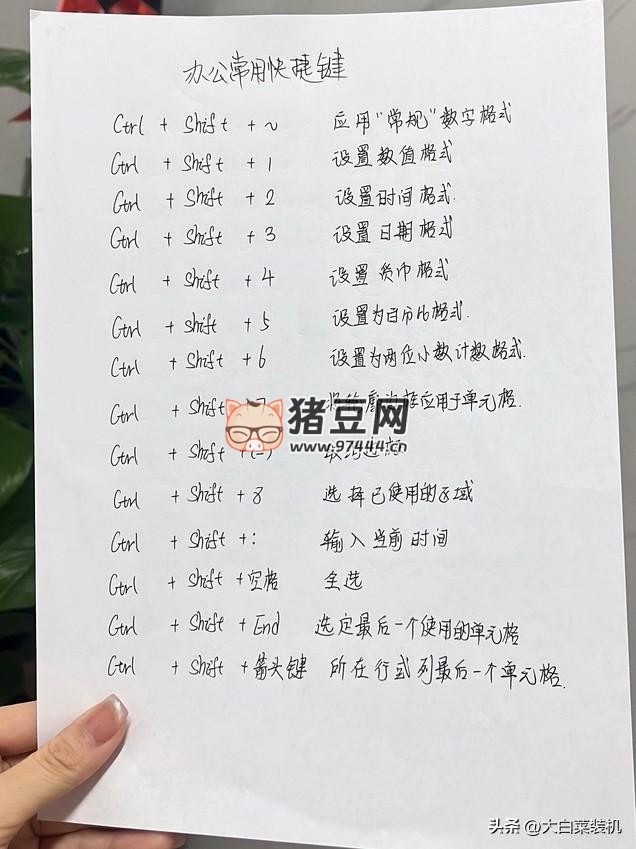 办公常用快捷键
Ctrl + Shift + ~ 应用"常规"数字格式
Ctrl + Shift + 1 设置数值格式
Ctrl + Shift + 2 设置时间格式.
Ctrl + Shift + 3 设置日期格式
Ctrl + Shift + 4 设置货币格式
Ctrl + Shift + 5 设置为百分比格式.
Ctrl + Shift + 6 设置为两位小数计数格式.
Ctrl + Shift 应用于单元格.
猪豆网
www.97444.cn
Ctrl + Shift
Ctrl + Shift + 8 选择已使用的区域
Ctrl + Shift +: 输入当前时间
Ctrl + Shift +空格 全选
Ctrl + Shift +End 选定最后一个使用的单元格
Ctrl + Shift +箭头键 所在行或列最后一个单元格.
头条 @大白菜装机